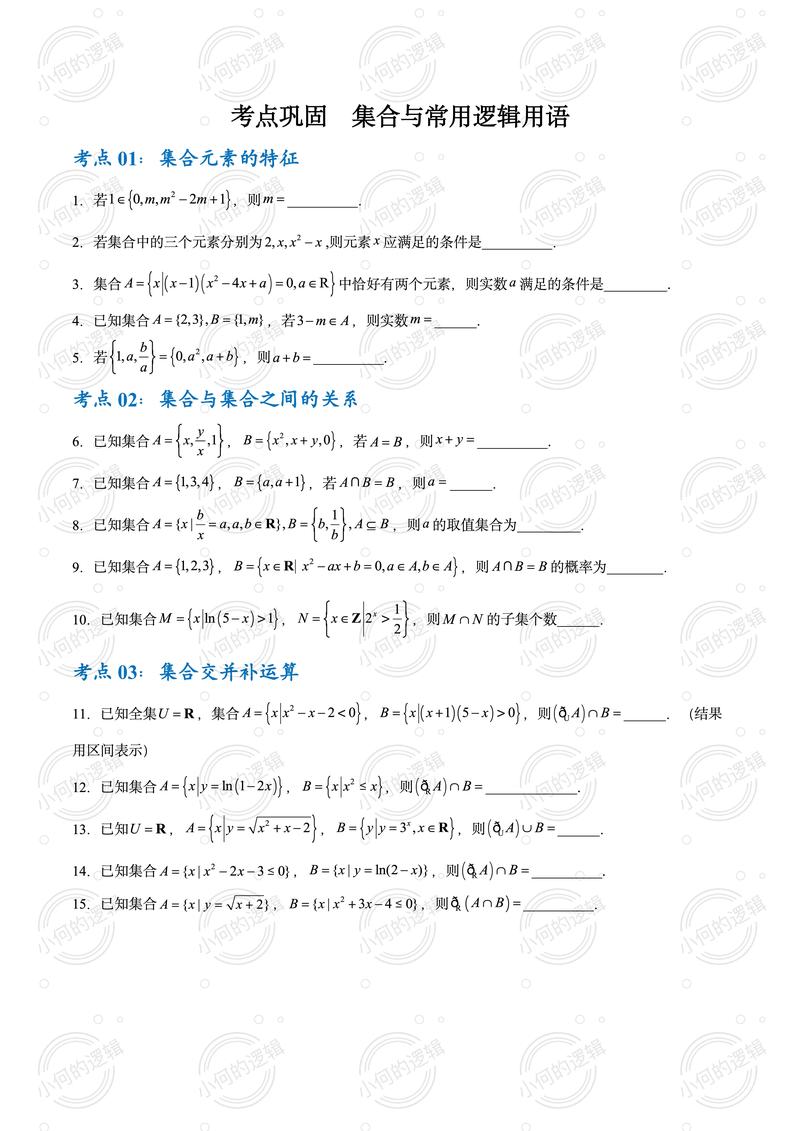 考点巩固 集合与常用逻辑用语
考点 01：集合元素的特征
1. 若1∈{0,m,m²−2m+1}，则m=__________.
2. 若集合中的三个元素分别为2,x,x²−x,则元素x应满足的条件是__________.
3. 集合A={x|(x−1)(x²−4x+a)=0,a∈R}中恰好有两个元素，则实数a满足的条件是_________.
4. 已知集合A={2,3},B={1,m}，若3−m∈A，则实数m=______.
5. 若{1,a,b/a}={0,a²,a+b}，则a+b=__________.
考点 02：集合与集合之间的关系
6. 已知集合A={x,y/x,1}，B={x²,x+y,0}，若A=B，则x+y=__________.
7. 已知集合A={1,3,4}，B={a,a+1}，若A∩B=B，则a=______.
8. 已知集合A={x|b/x=a,a,b∈R},B={b,1/b},A⊆B，则a的取值集合为_________.
9. 已知集合A={1,2,3}，B={x∈R|x²−ax+b=0,a∈A,b∈A}，则A∩B=B的概率为________.
10. 已知集合M={x|ln(5−x)>1}，N={x∈Z|2ˣ>1/2}，则M∩N的子集个数______.
考点 03：集合交并补运算
11. 已知全集U=R，集合A={x|x²−x−2<0}，B={x|(x+1)(5−x)>0}，则(ðᵤA)∩B=______.（结果
用区间表示）
12. 已知集合A={x|y=ln(1−2x)}，B={x|x²≤x}，则(ðRA)∩B=_____________.
13. 已知U=R，A={x|y=√(x²+x−2)}，B={y|y=3ˣ,x∈R}，则(ðᵤA)∪B=______.
14. 已知集合A={x|x²−2x−3≤0}，B={x|y=ln(2−x)}，则(ðRA)∩B=__________.
15. 已知集合A={x|y=√(x+2)}，B={x|x²+3x−4≤0}，则ðR(A∩B)=__________.
小何的逻辑